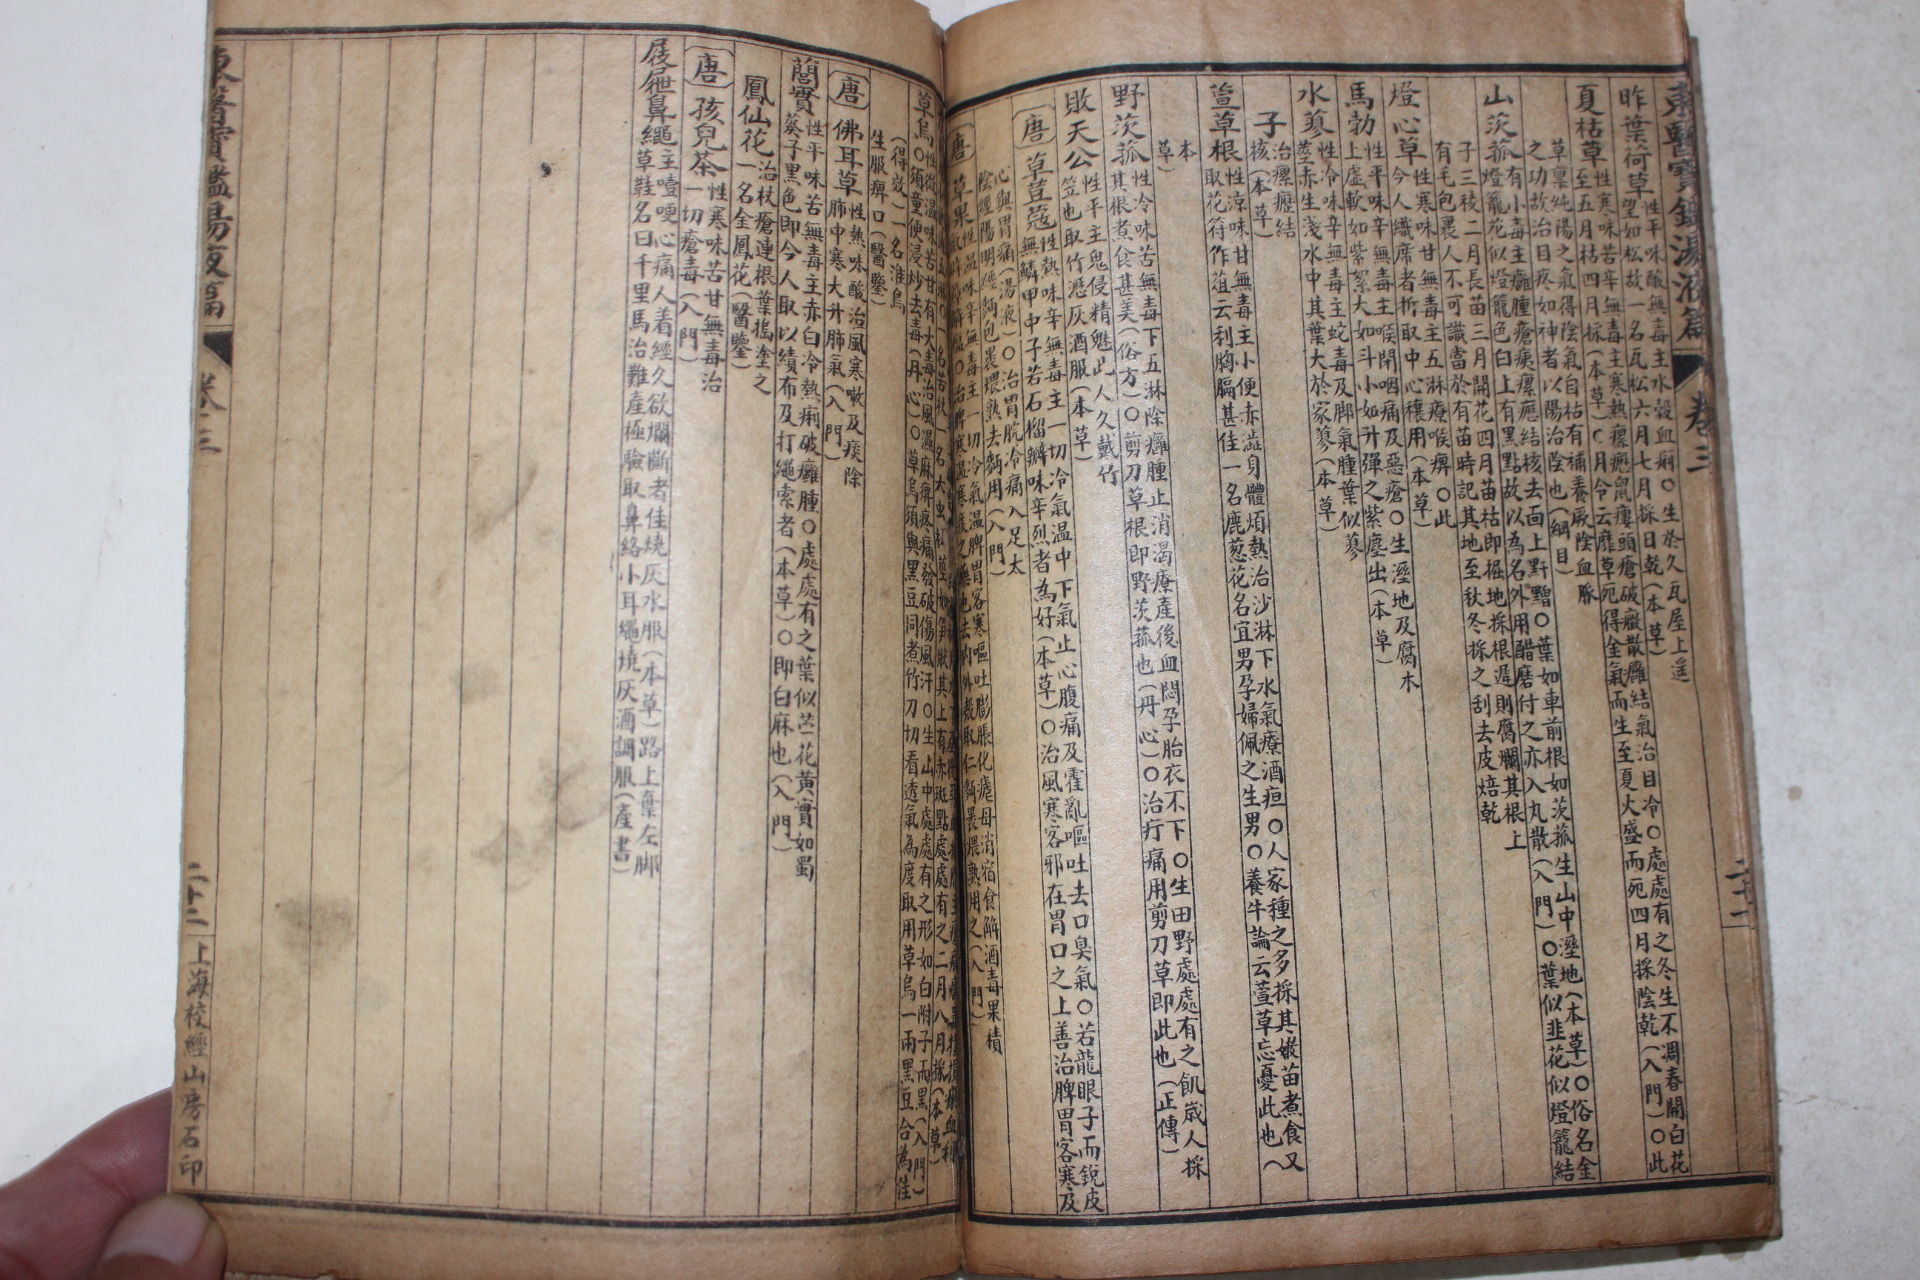 東醫寶鑑湯液篇 卷三 二十一
昨葉荷草 性平味酸無毒主水穀血痢〇生於久瓦屋上遙
望如松故一名瓦松六月七月採日乾(本草)
夏枯草 性寒味苦辛無毒主寒熱瘰癧鼠瘻頭瘡破癥散癭結氣治目冷〇處處有之冬生不凋春開白花
至五月枯四月採(本草)〇月令云靡草死得金氣而生至夏火盛而死四月採陰乾(入門)〇此
草稟純陽之氣得陰氣自枯有補養厥陰血脈
之功故治目疼如神者以陽治陰也(綱目)
山茨菰 有小毒主癰腫瘡瘻瘰癧結核去面上䵟䵳〇葉如車前根如茨菰生山中濕地(本草)〇俗名金
燈籠花似燈籠色白上有黑點故以為名外用醋磨付之亦入丸散(入門)〇葉似韭花似燈籠結
子三稜二月長苗三月開花四月苗枯即掘地採根遲則腐爛其根上
有毛包裹人不可識當於有苗時記其地至秋冬採之刮去皮焙乾
燈心草 性寒味甘無毒主五淋療喉痺〇此
今人織席者折取中心穰用(本草)
馬勃 性平味辛無毒主喉閉咽痛及惡瘡〇生濕地及腐木
上虛軟如紫絮大如斗小如升彈之紫塵出(本草)
水蓼 性冷味辛無毒主蛇毒及脚氣腫葉似蓼
莖赤生淺水中其葉大於家蓼(本草)
子 治瘰癧結
核(本草)
萱草根 性涼味甘無毒主小便赤澁身體煩熱治沙淋下水氣療酒疸〇人家種之多採其嫩苗煮食又
取花符作菹云利胸膈甚佳一名鹿葱花名宜男孕婦佩之生男〇養牛論云萱草忘憂此也(
本
草
野茨菰 性冷味苦無毒下五淋除癰腫止消渴療產後血悶孕胎衣不下〇生田野處處有之飢歲人採
其根煮食甚美(俗方)〇剪刀草根即野茨菰也(丹心)〇治疔痛用剪刀草即此也(正傳)
敗天公 性平主鬼侵精魅此人久戴竹
笠也取竹瀝灰酒服(本草)
唐 草荳蔻 性熱味辛無毒主一切冷氣温中下氣止心腹痛及霍亂嘔吐去口臭氣〇若龍眼子而銳皮
無鱗甲中子若石榴瓣味辛烈者為好(本草)〇治風寒客邪在胃口之上善治脾胃客寒及
心與胃痛(湯液)〇治胃脘冷痛入足太
陰經陽明經麵包裹煨熟去麪用(入門)
唐 草果 性温味辛無毒主一切冷氣温脾胃客寒嘔吐膨脹化瘧母消宿食解酒毒果積
草烏 性微温味苦甘有大毒治風濕麻痺疼痛發破傷風汗〇生山中處處有之形如白附子而黑(入門)
〇須童便浸炒去毒(丹心)〇草烏須與黑豆同煮竹刀切看透氣為度取用草烏一兩黑豆合為佳
(得效)一名淮烏
生服痺口(醫鑒)
唐 佛耳草 性熱味酸治風寒嗽及痰除
肺中寒大升肺氣(入門)
䔛實 性平味苦無毒主赤白冷熱痢破癰腫〇處處有之葉似苧花黃實如蜀
葵子黑色即今人取以績布及打繩索者(本草)〇即白麻也(入門)
鳳仙花 治杖瘡連根葉搗塗之
一名金鳳花(醫鑒)
唐 孩兒茶 性寒味苦甘無毒治
一切瘡毒(入門)
屐屜鼻繩 主噎哽心痛人着經久欲爛斷者佳燒灰水服(本草)路上棄左脚
草鞋名曰千里馬治難產極驗取鼻絡小耳繩燒灰酒調服(產書)
東醫寶鑑湯液篇 卷三 二十二 上海校經山房石印